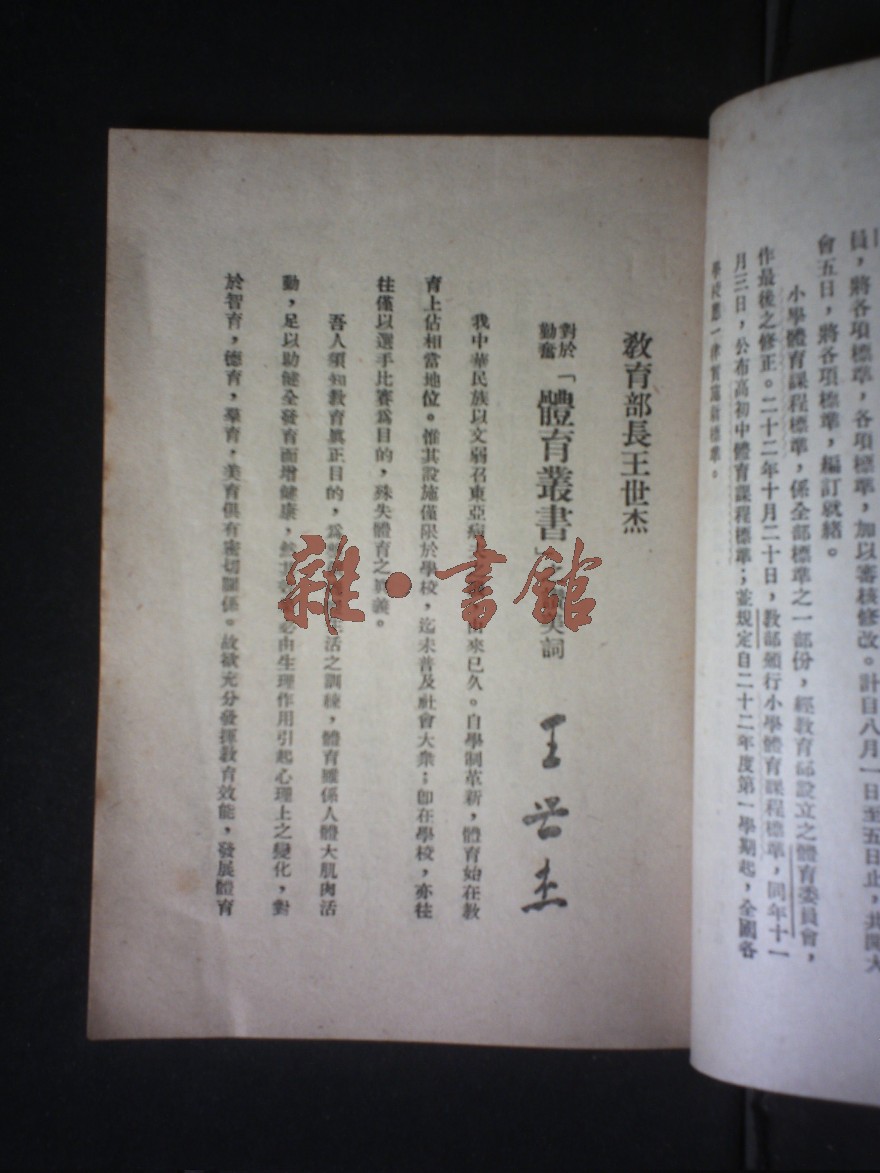 員，將各項標準，各項標準，加以審核修改。計自八月一日至五日止，共開大
會五日，將各項標準，編訂就緒。
小學體育課程標準，係全部標準之一部份，經教育部設立之體育委員會，
作最後之修正。二十二年十月二十日，教部頒行小學體育課程標準，同年十一
月三日，公布高初中體育課程標準；並規定自二十二年度第一學期起，全國各
學校應一律實施新標準。
教育部長王世杰
對於勤奮「體育叢書」詞
王世杰
我中華民族以文弱召東亞病來已久。自學制革新，體育始在教
育上佔相當地位。惟其設施僅限於學校，迄未普及社會大衆；卽在學校，亦往
往僅以選手比賽爲目的，殊失體育之義。
吾人須知教育眞正目的，爲活之訓練，體育雖係人體大肌肉活
動，足以助健全發育而增健康，必由生理作用引起心理上之變化，對
於智育，德育，羣育，美育俱有密切關係。故欲充分發揮教育效能，發展體育
雜·書館